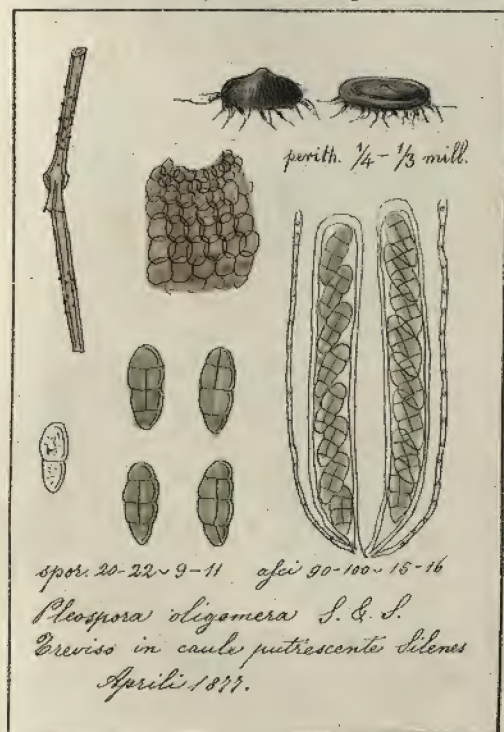 perith. 1/4 – 1/3 mill.
spor. 20-22 ~ 9-11 asci 90-100 ~ 15-16
Pleospora oligomera S. & S.
Treviso in caule putrescente Silenes
Aprili 1877.